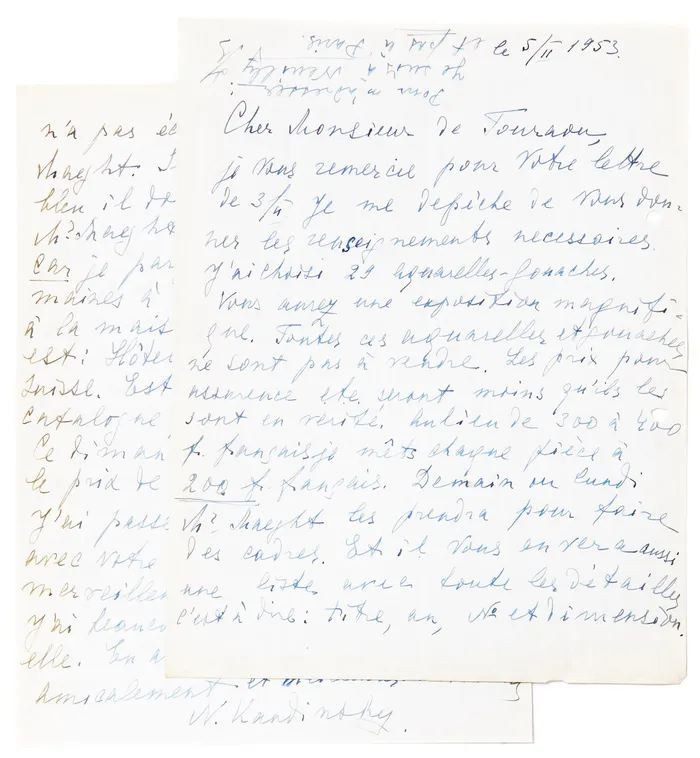 le 5/II 1953.
Pour m'adresser :
je suis à Neuilly s/S
et pas à Paris.
Cher Monsieur de Touraou,
je Vous remercie pour Votre lettre
de 3/II Je me depêche de Vous don-
ner les renseignements necessaires.
J'ai choisi 29 aquarelles-gouaches.
Vous aurez une exposition magnifi-
que. Toutes ces aquarelles et gouaches
ne sont pas à vendre. Les prix pour
assurence etc. seront moins qu'ils les
sont en verité. Au lieu de 300 à 400
f. français je mêts chaque pièce à
200 f. français. Demain ou lundi
Mr. Maeght les prendra pour faire
des cadres. Et il Vous enverra aussi
une liste avec toute les détailles
c'est à dire: titre, an, No et dimension.
n'a pas éc
Maeght.
bleu il do
Mr. Maeght
Car je par
maines à
à la mais
est: Hôtel
Suisse. Est
catalogue
Ce diman
le prix de
J'ai passé
avec votre
merveilleu
J'ai beauco
elle. En a
amicalement et
N. Kandinsky.